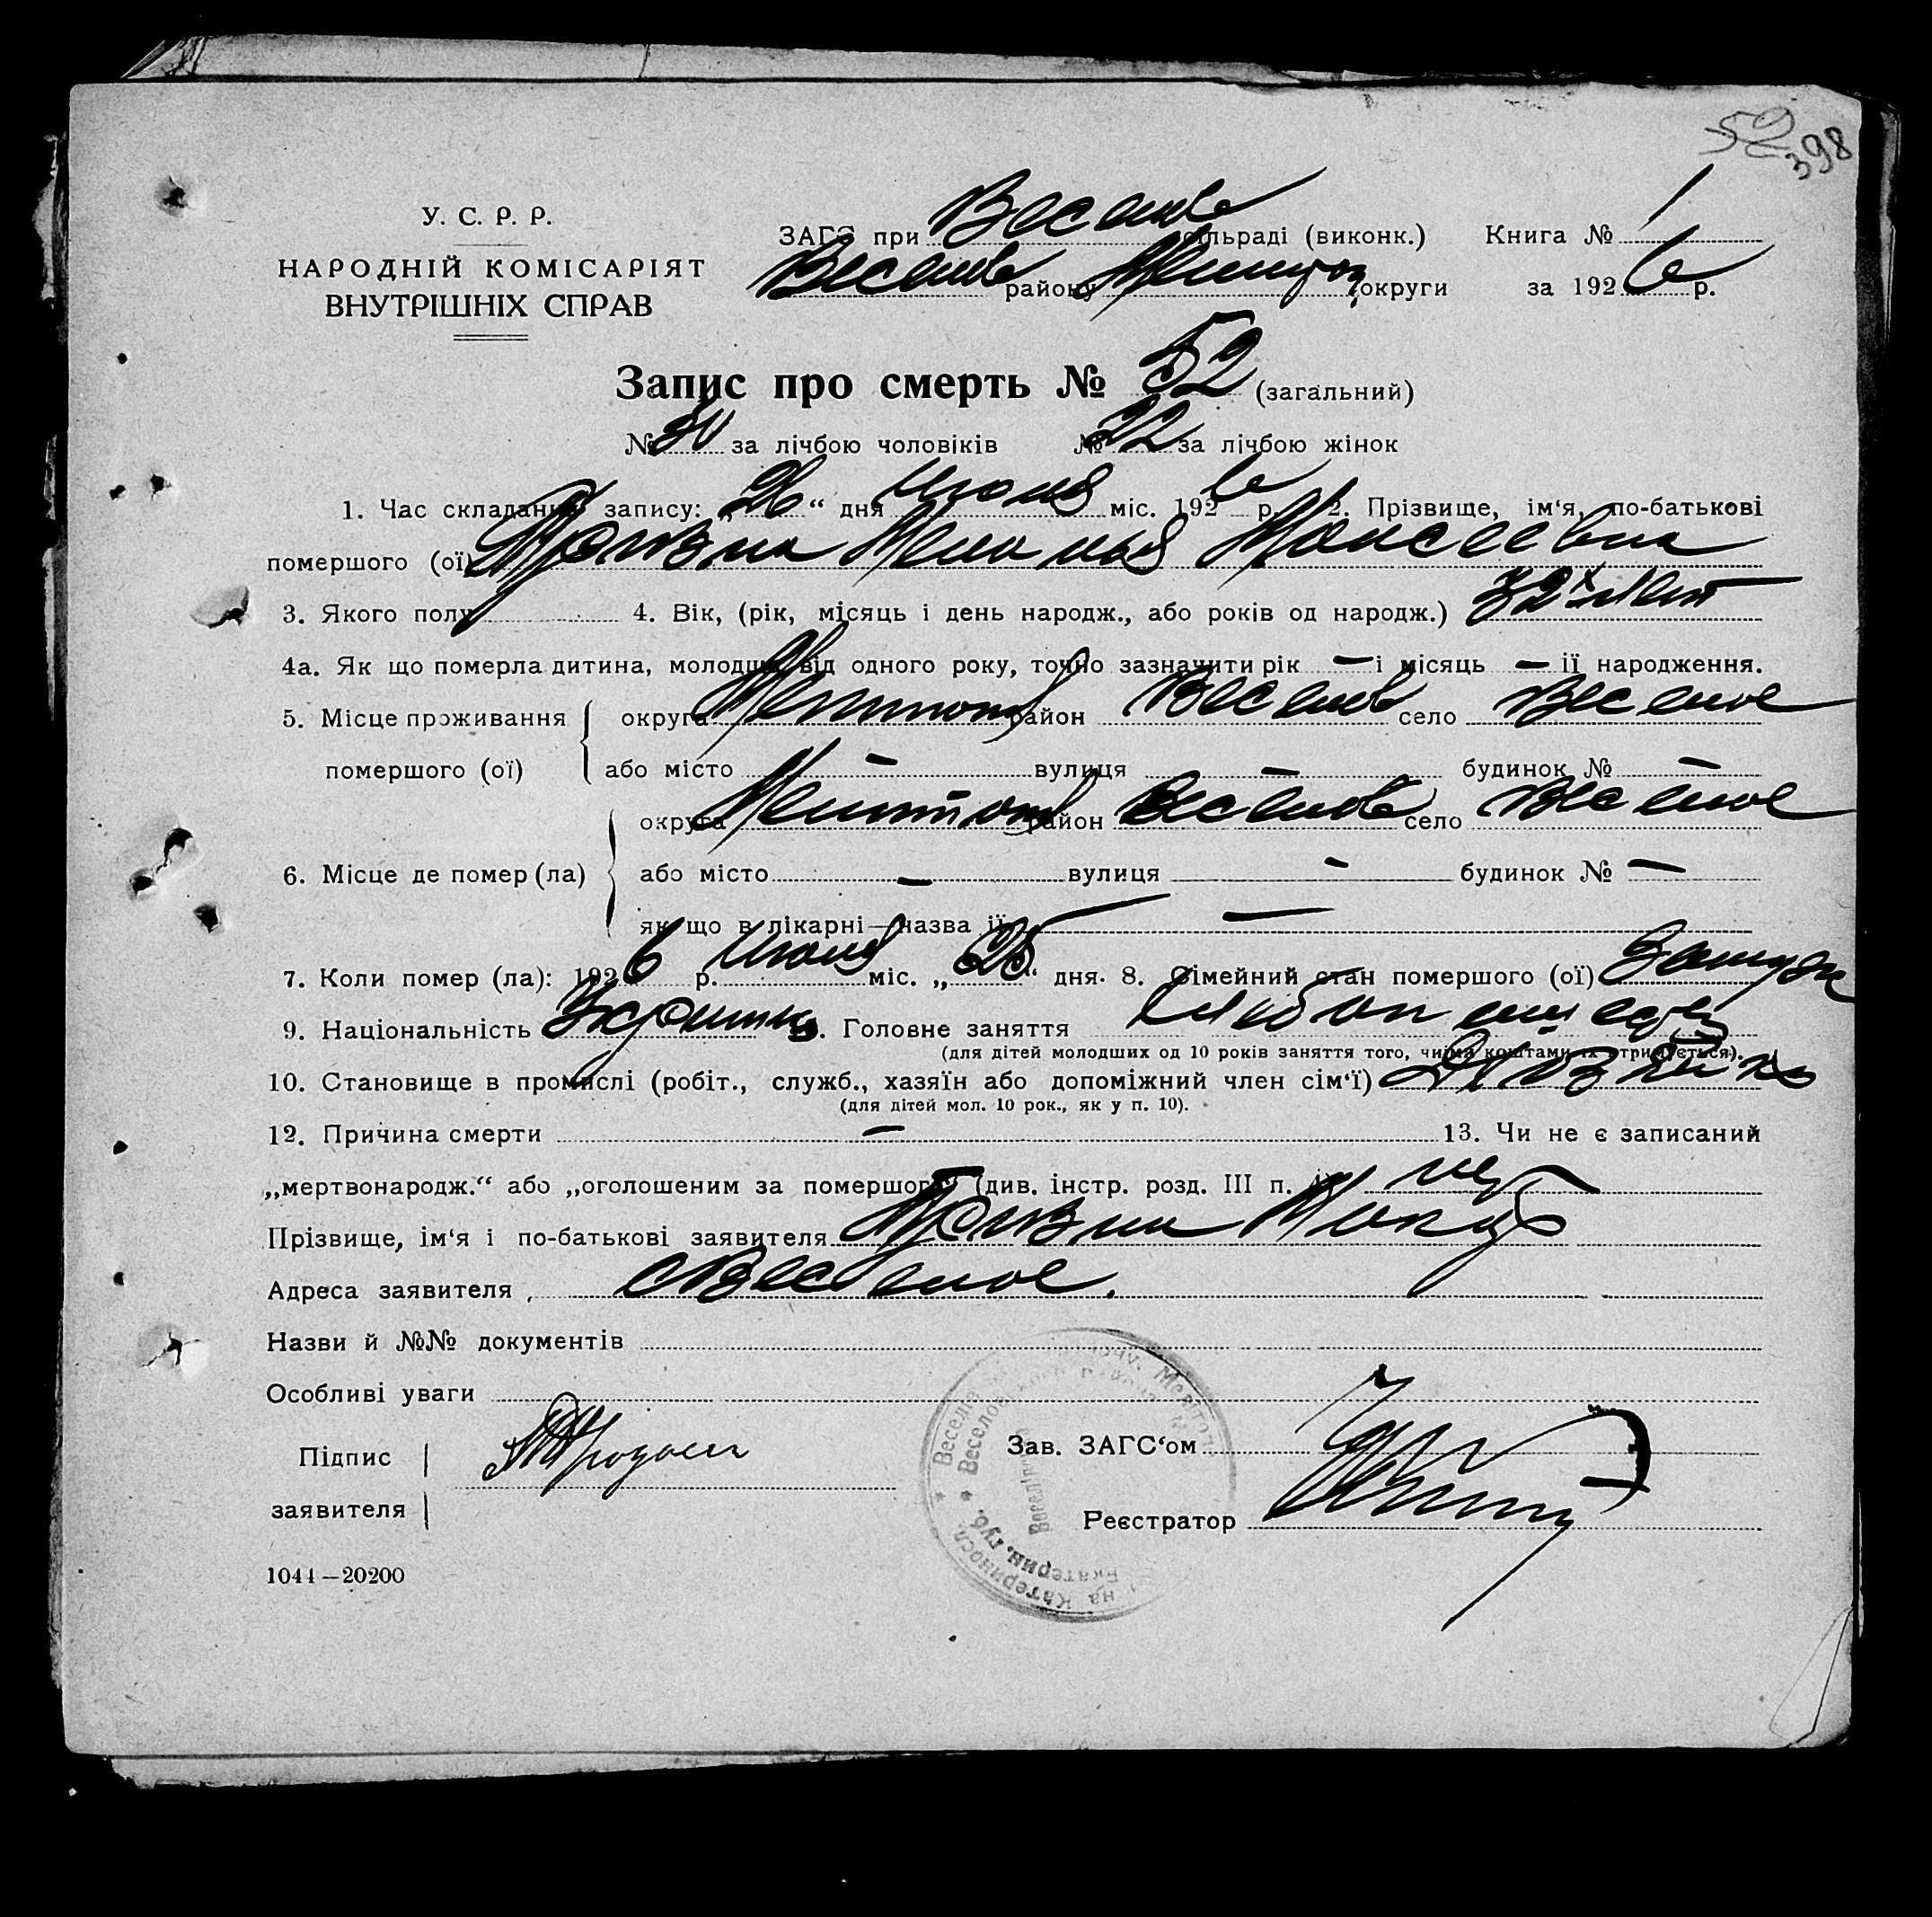 52 398
У. С. Р. Р.
НАРОДНІЙ КОМІСАРІЯТ
ВНУТРІШНІХ СПРАВ
ЗАГС при Веселов сільраді (виконк.) Книга № 1
Веселов району Мелитоп округи за 1926 р.
Запис про смерть № 52 (загальний)
№ 30 за лічбою чоловіків № 22 за лічбою жінок
1. Час складання запису: „26“ дня Июня міс. 1926 р. 2. Прізвище, ім‘я, по-батькові
помершого (ої) Мелания Моисеевна
3. Якого полу 4. Вік, (рік, місяць і день народж., або років од народж.) 32х лет
4а. Як що померла дитина, молодша від одного року, точно зазначити рік — і місяць — її народження.
5. Місце проживання округа Мелитоп район Веселов село Веселое
помершого (ої) або місто — вулиця — будинок № —
округа Мелитоп район Веселов село Веселое
6. Місце де помер (ла) або місто — вулиця — будинок № —
як що в лікарні—назва її —
7. Коли помер (ла): 1926 р. Июня міс. „25“ дня. 8. Сімейний стан помершого (ої) Замужн
9. Національність Украинка . Головне заняття Хлебопашец
(для дітей молодших од 10 років заняття того, чиїми коштами їх отримується).
10. Становище в промислі (робіт., служб., хазяїн або допоміжний член сім‘ї) Хозяйка
(для дітей мол. 10 рок., як у п. 10).
12. Причина смерти — 13. Чи не є записаний
„мертвонародж.“ або „оголошеним за помершого“ (див. інстр. розд. III п. нет
Прізвище, ім‘я і по-батькові заявителя
Адреса заявителя с Веселое.
Назви й №№ документів
Особливі уваги
Підпис
заявителя
Зав. ЗАГС‘ом
Реєстратор
1044—20200